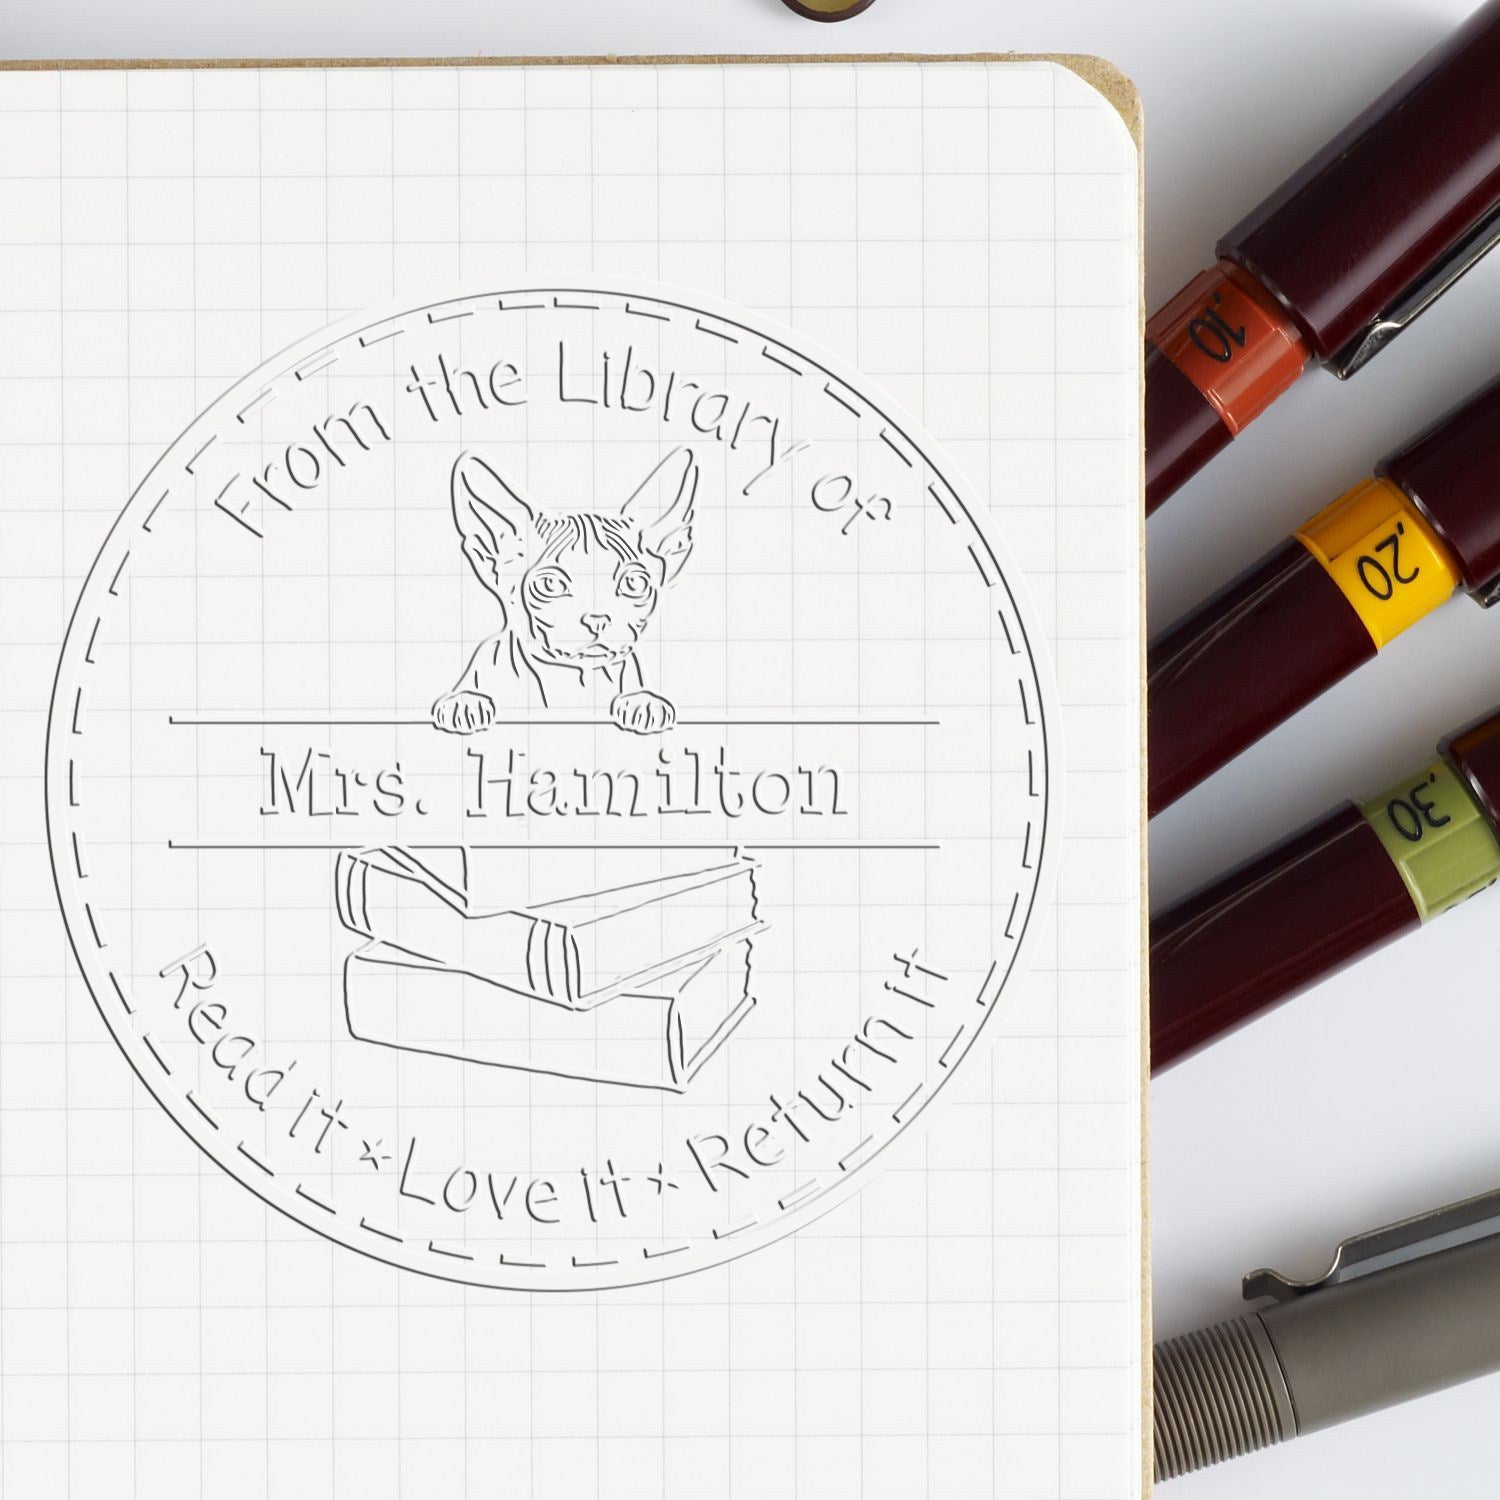 From the Library of
Mrs. Hamilton
Read it * Love it * Return it
.10
.20
.30